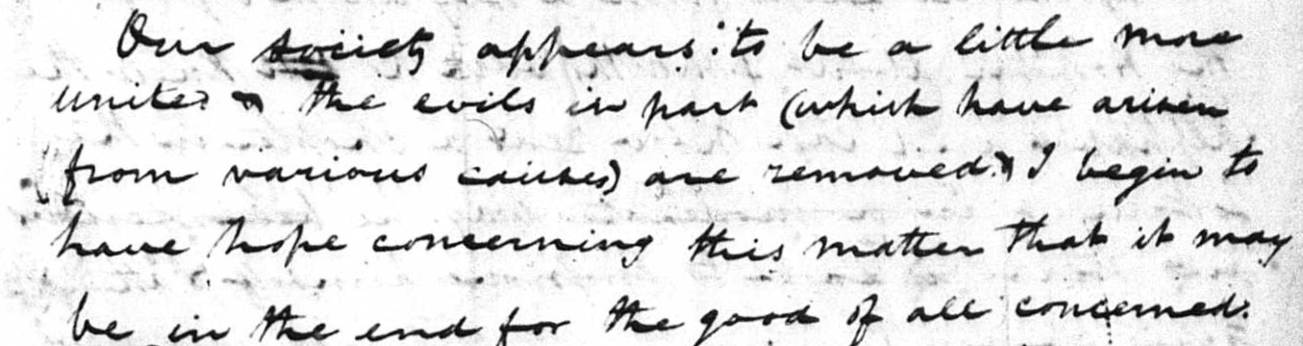 Our society appears to be a little more
unite. & the evils in part (which have arisen
from various causes) are removed. & I begin to
have hope concerning this matter that it may
be in the end for the good of all concerned.